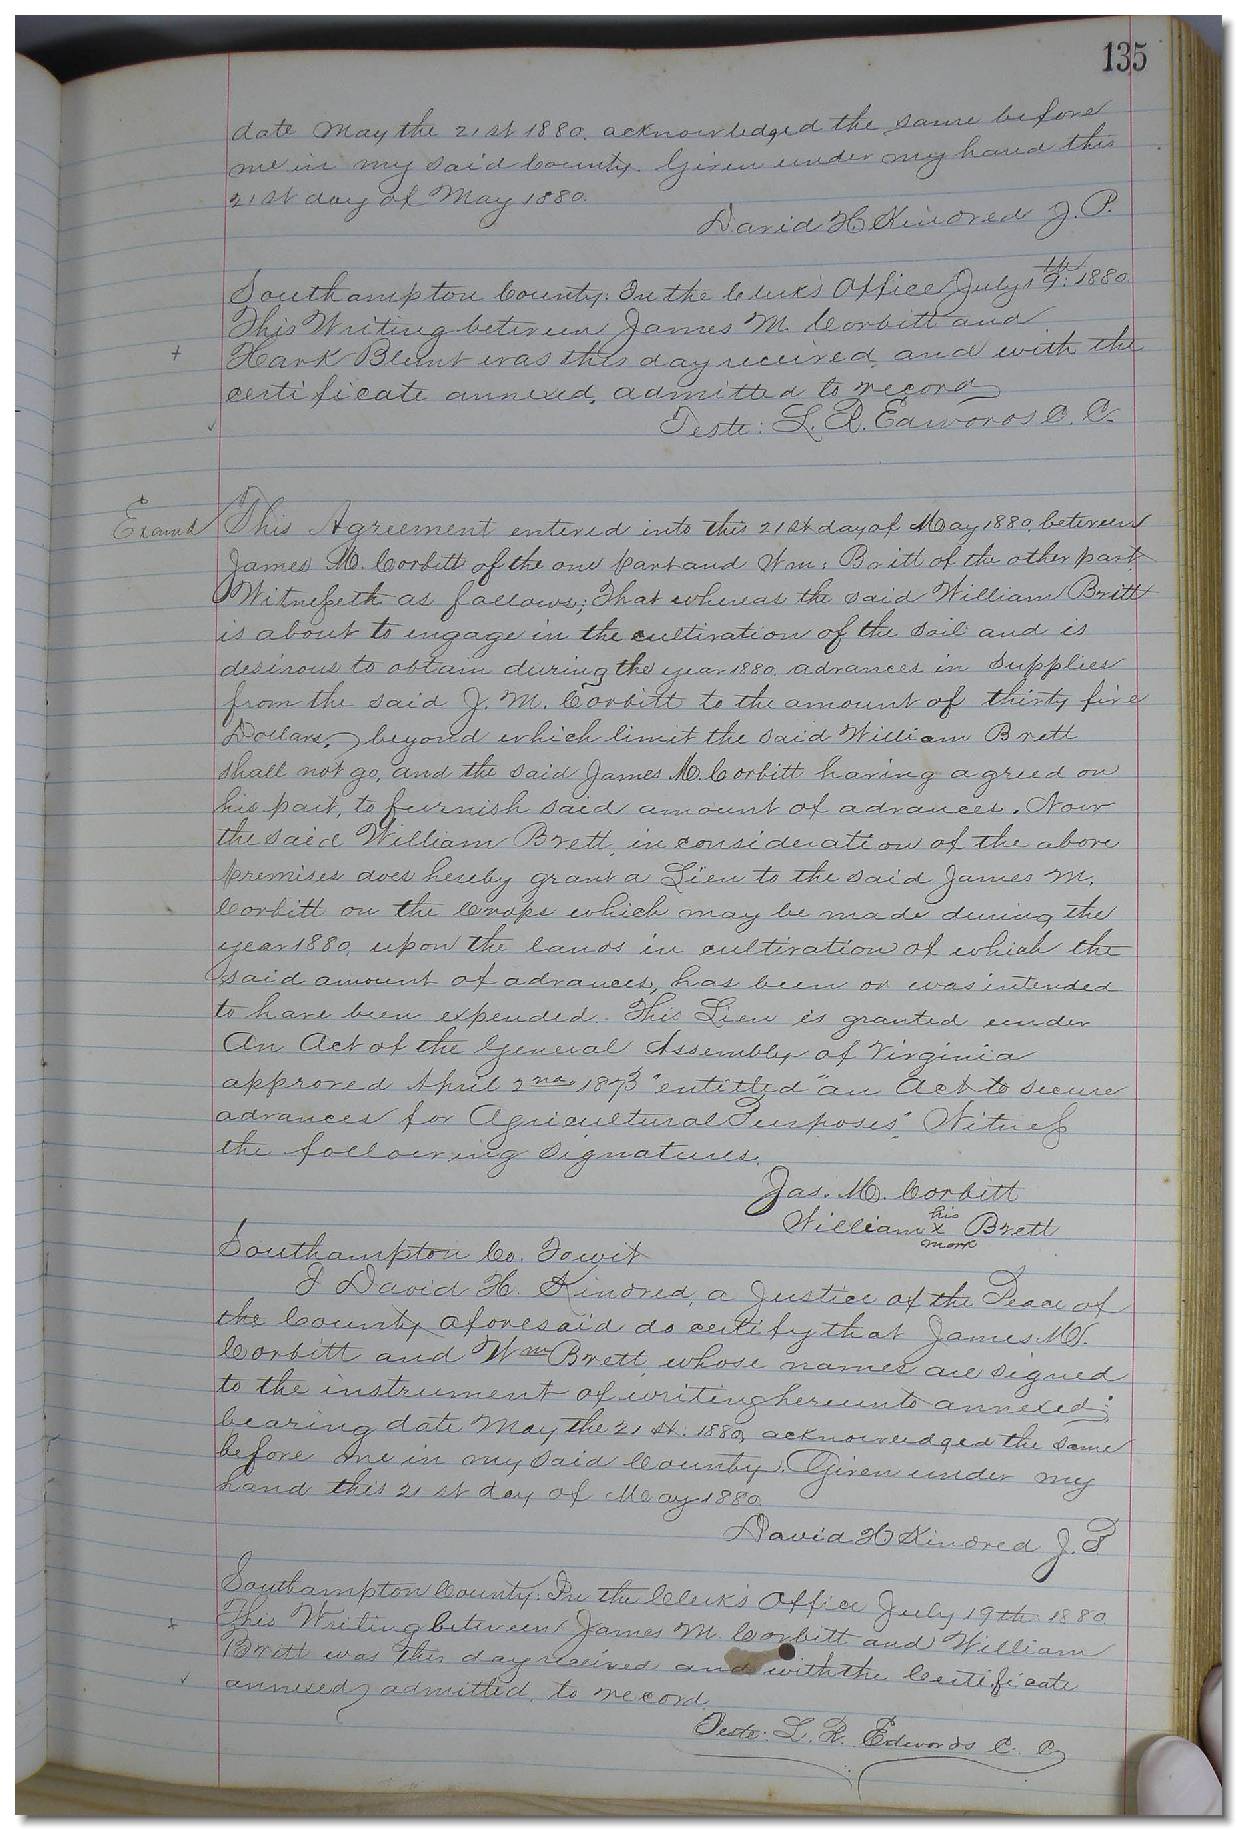 135
date May the 21st 1880. acknowledged the same before
me in my said County. Given under my hand this
21st day of May 1880.
David H Kindred J. P.
Southampton County: In the Clerk's Office July 19th: 1880.
This Writing between James M. Corbitt and
Hark Blunt was this day received, and with the
certificate annexed, admitted to record
Teste: L. R. Edwards C. C.
Examd This Agreement entered into this 21st day of May 1880, between
James M. Corbitt of the one part and Wm: Britt of the other part
Witnesseth as follows; That whereas the said William Britt
is about to engage in the cultivation of the soil and is
desirous to obtain during the year 1880. advances in supplies
from the said J. M. Corbitt to the amount of thirty five
Dollars, beyond which limit the said William Brett
shall not go, and the said James M. Corbitt having agreed on
his part, to furnish said amount of advances. Now
the said William Brett, in consideration of the above
premises does hereby grant a Lien to the said James M.
Corbitt on the Crops which may be made during the
year 1880, upon the lands in cultivation of which the
said amount of advances, has been or was intended
to have been expended. This Lien is granted under
An Act of the General Assembly of Virginia
approved April 2nd 1873 "entitled "an Act to secure
advances for Agricultural Purposes". Witness
the following signatures.
Jas. M. Corbitt
William his x mark Brett
Southampton Co. Towit
I David H. Kindred, a Justice of the Peace of
the County aforesaid do certify that James M.
Corbitt and Wm Brett whose names are signed
to the instrument of writing hereunto annexed;
bearing date May the 21st. 1880, acknowledged the same
before me in my said County. Given under my
hand this 21st day of May 1880.
David H Kindred J. P
Southampton County: In the Clerk's Office July 19th 1880
This Writing between James M. Corbitt and William
Britt was this day received and with the Certificate
annexed, admitted to record.
Teste: L. R. Edwards C. C.